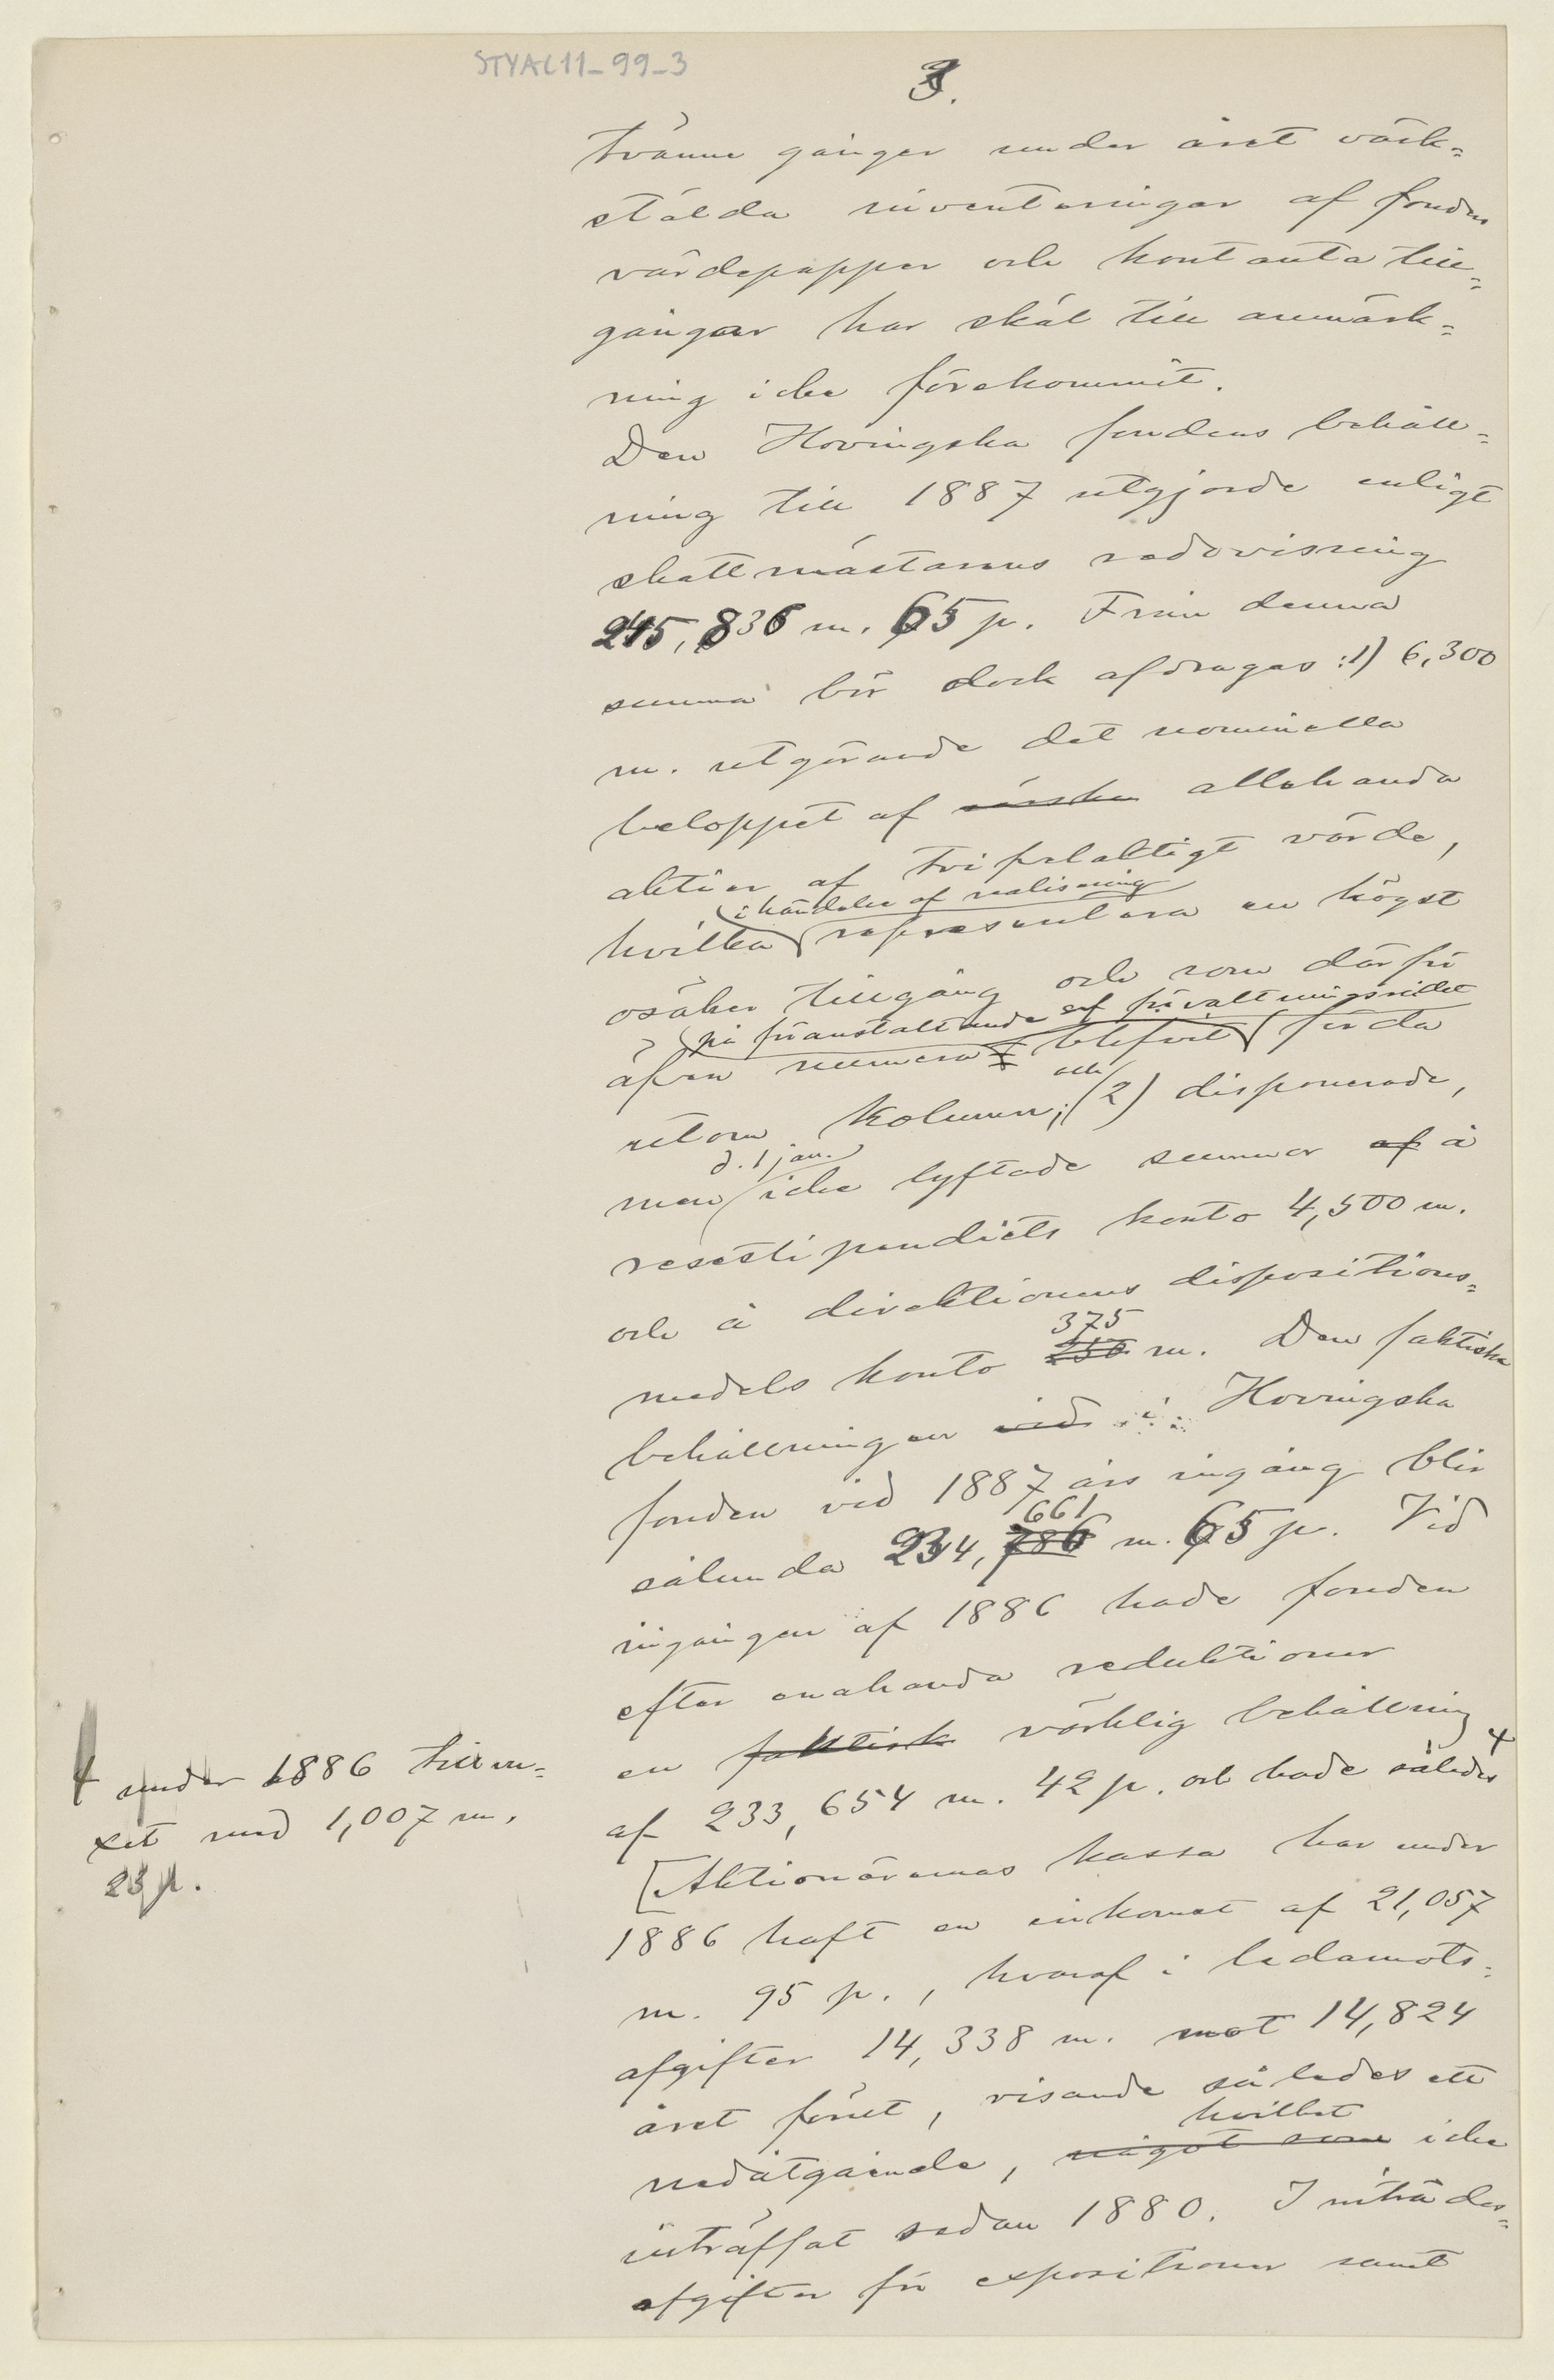 STYAL11_99_3
3.
tvänne gånger under året värk=
stälda inventeringar af fondens
värdepapper och kontanta till=
gångar har skäl till anmärk=
ning icke förekommit.
Den Hovingska fondens behåll=
ning till 1887 utgjorde enligt
skattmästarens redovisning
245,836 m. 65 p. Från denna
summa bör dock afdragas: 1) 6,300
m. utgörande det nominella
beloppet af allehanda
aktier af tvifvelaktigt värde,
i händelse af realisering
hvilka representera en högst
osäker tillgång och som därför
på föranstaltande af förvaltningsrådet
äfven numera blifvit förda
utom kolumn; och 2) disponerade,
d. 1 jan.
men icke lyftade summor af å
resestipendiets konto 4,500 m.
och å direktionens dispositions=
375
medels konto 250 m. Den faktiska
behållningen vid i Hovingska
fonden vid 1887 års ingång blir
661
sålunda 234,786 m. 65 p. Vid
ingången af 1886 hade fonden
efter enahanda reduktioner
en faktisk värklig behållning
af 233,654 m. 42 p. och hade således
under 1886 tillvu=
xit med 1,007 m.
23 p.
[Aktionärernas kassa har under
1886 haft en inkomst af 21,057
m. 95 p., hvaraf i ledamots=
afgifter 14,338 m. mot 14,824
året förut, visande således ett
hvilket
nedåtgående, något som icke
inträffat sedan 1880. I inträdes=
afgifter för expositioner samt